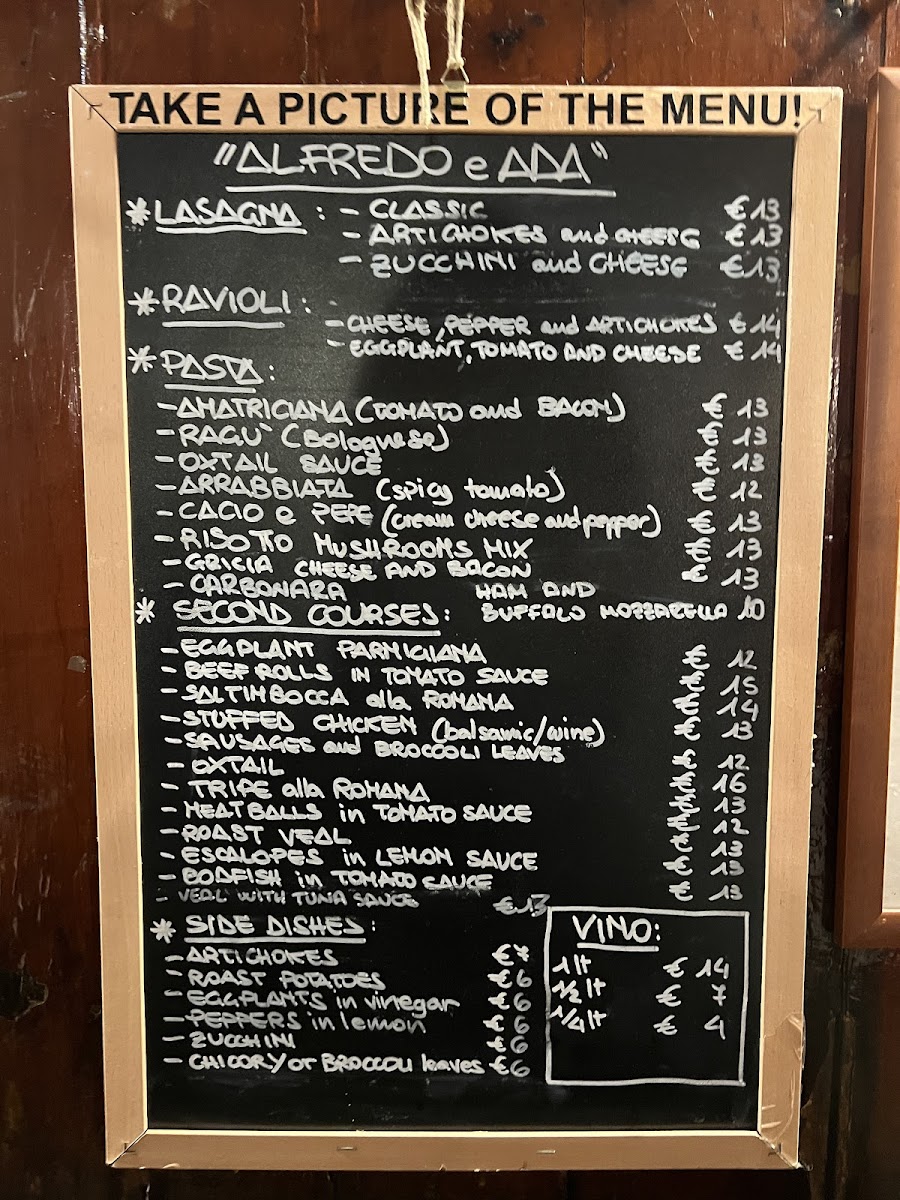 TAKE A PICTURE OF THE MENU!
"ALFREDO e ADA"
* LASAGNA : - CLASSIC €13
- ARTICHOKES and CHEESE €13
- ZUCCHINI and CHEESE €13
* RAVIOLI :
- CHEESE, PEPPER and ARTICHOKES € 14
- EGGPLANT, TOMATO AND CHEESE € 14
* PASTA :
- AMATRICIANA (TOMATO and BACON) € 13
- RAGU' (Bolognese) € 13
- OXTAIL SAUCE € 13
- ARRABBIATA (spicy tomato) € 12
- CACIO e PEPE (cream cheese and pepper) € 13
- RISOTTO MUSHROOMS MIX € 13
- GRICIA CHEESE AND BACON € 13
- CARBONARA HAM AND
* SECOND COURSES: BUFFALO MOZZARELLA 10
- EGGPLANT PARMIGIANA € 12
- BEEF ROLLS IN TOMATO SAUCE € 15
- SALTIMBOCCA alla ROMANA € 14
- STUFFED CHICKEN (balsamic/wine) € 13
- SAUSAGES and BROCCOLI LEAVES € 12
- OXTAIL € 16
- TRIPE alla ROMANA € 13
- MEATBALLS in TOMATO SAUCE € 12
- ROAST VEAL € 13
- ESCALOPES in LEMON SAUCE € 13
- BODFISH in TOMATO SAUCE € 13
- VEAL WITH TUNA SAUCE €13
* SIDE DISHES :
- ARTICHOKES €7
- ROAST POTATOES €6
- EGGPLANTS in vinegar €6
- PEPPERS in lemon €6
- ZUCCHINI €6
- CHICORY or BROCCOLI leaves €6
VINO:
1 lt € 14
1/2 lt € 7
1/4 lt € 4